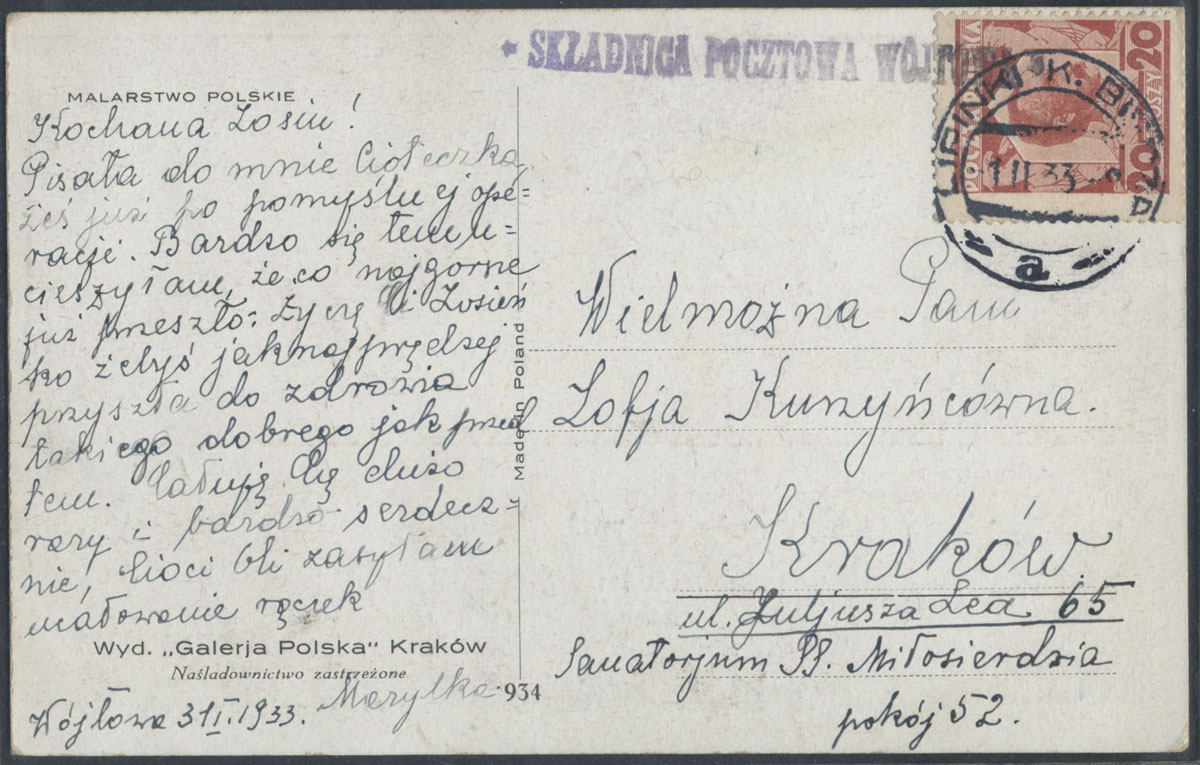 * SKŁADNICA POCZTOWA WÓJTOWA
MALARSTWO POLSKIE
Kochana Zosiu!
Pisała do mnie Cioteczka
żeś już po pomyślnej ope=
racji. Bardzo się temu u=
cieszyłam, że co najgorsze
już przeszło: Życzę Ci Zosień
ko żebyś jaknajprędzej
przyszła do zdrowia
takiego dobrego jak przed
tem. Całuję Cię dużo
razy i bardzo serdecz=
nie, Cioci Oli zasyłam
ucałowanie rączek
Wyd. „Galerja Polska" Kraków
Naśladownictwo zastrzeżone
Marylka
Wójtowa 31 I. 1933.
934
Made in Poland
20
20
1 II 33
a
Wielmożna Pani
Zofja Kurzyńcówna.
Kraków.
ul. Juljusza Lea 65
Sanatorjum PP. Miłosierdzia
pokój 52.